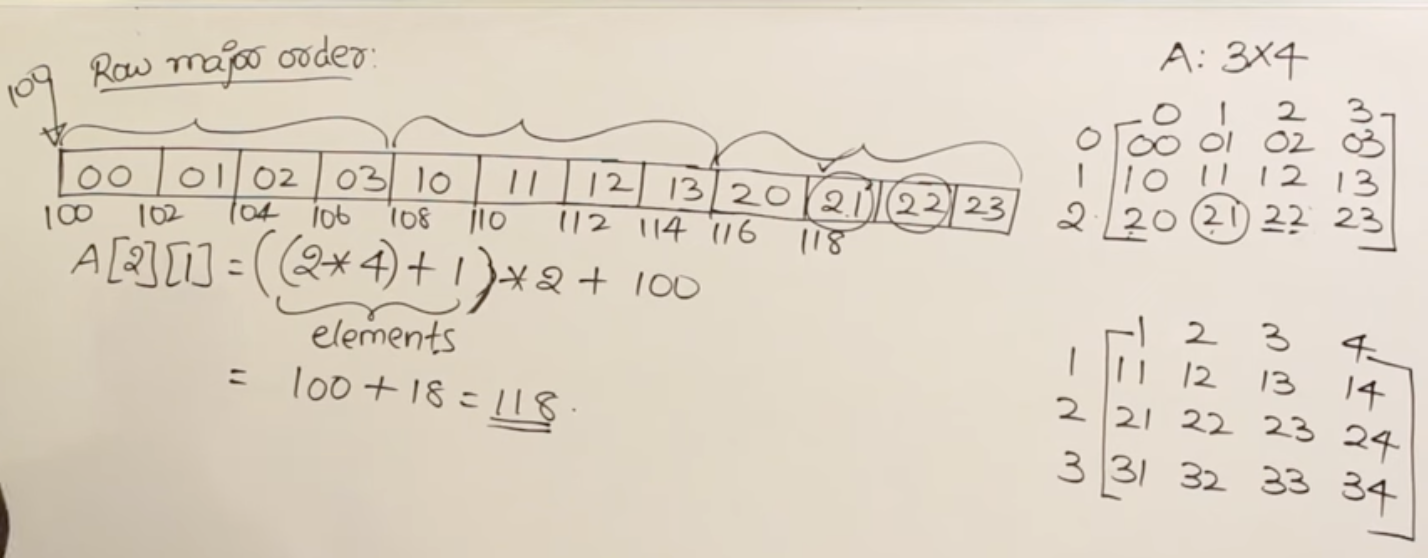 Row major order:
100
00 01 02 03 10 11 12 13 20 21 22 23
100 102 104 106 108 110 112 114 116 118
A[2][1] = ((2*4)+1)*2 + 100
elements
= 100 + 18 = 118.
A: 3×4
0 1 2 3
0 00 01 02 03
1 10 11 12 13
2 20 21 22 23
1 2 3 4
1 11 12 13 14
2 21 22 23 24
3 31 32 33 34